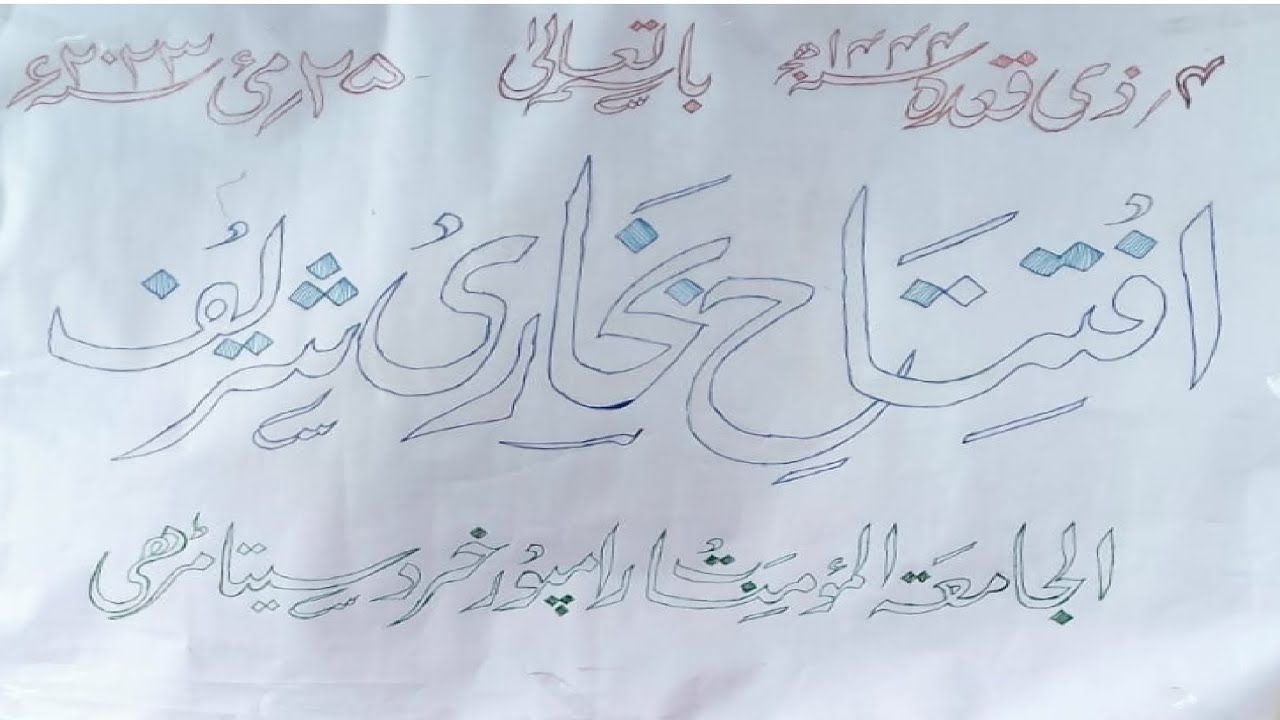 ۴؍ ذی قعدہ ۱۴۴۴ھ باسمہ تعالیٰ ۲۵؍ مئی ۲۰۲۳ء
افتتاحِ بخاری شریف
الجامعۃ المؤمنات رامپور خرد سیتامڑھی